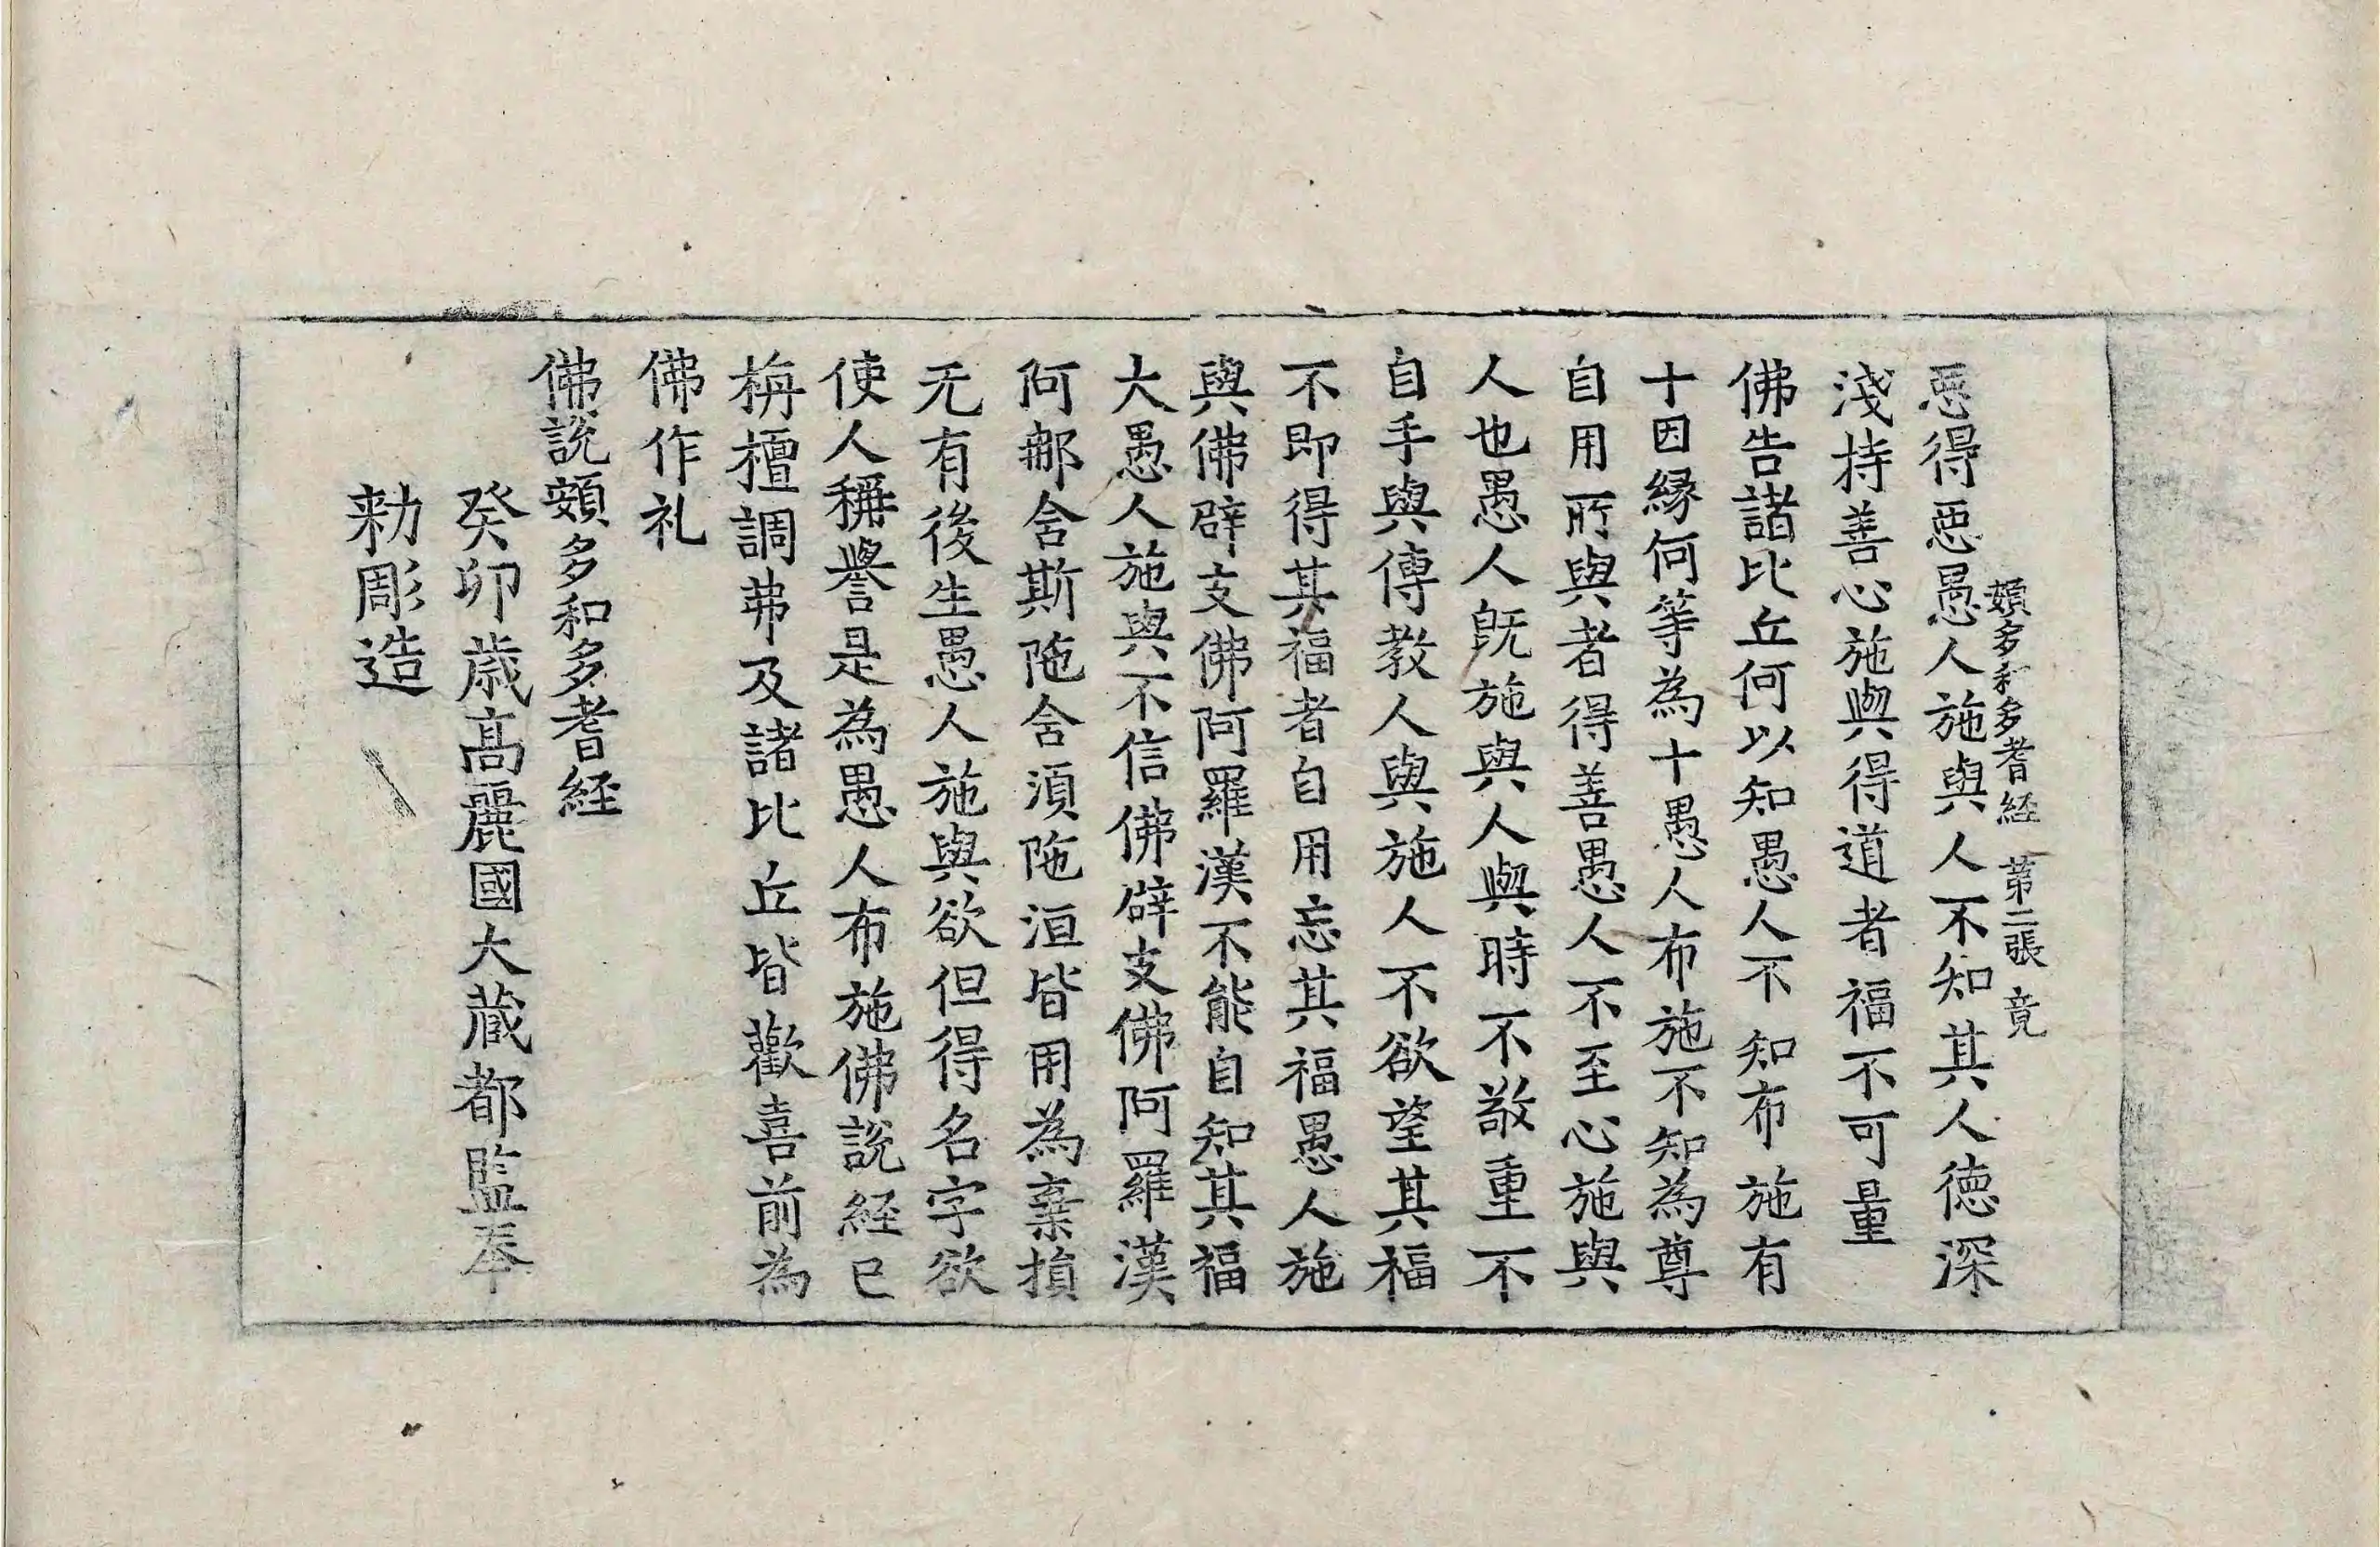 頞多和多耆経 第二張 竟
惡得惡愚人施與人不知其人徳深
淺持善心施與得道者福不可量
佛告諸比丘何以知愚人不知布施有
十因縁何等為十愚人布施不知為尊
自用所與者得善愚人不至心施與
人也愚人既施與人與時不敬重不
自手與傳教人與施人不欲望其福
不即得其福者自用忘其福愚人施
與佛辟支佛阿羅漢不能自知其福
大愚人施與不信佛辟支佛阿羅漢
阿那含斯陁含湏陁洹皆用為棄損
无有後生愚人施與欲但得名字欲
使人稱譽是為愚人布施佛說経已
栴檀調弗及諸比丘皆歡喜前為
佛作礼
佛說頞多和多耆経
癸卯歳髙麗國大蔵都監奉
勑彫造